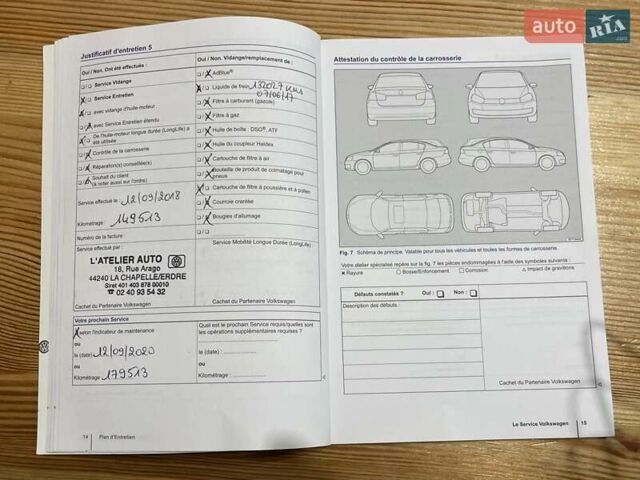 auto RIA .com
Justificatif d'entretien 5
Oui / Non. Ont été effectués :
Service Vidange
Service Entretien
avec vidange d'huile-moteur
avec Service Entretien étendu
De l'huile-moteur longue durée (LongLife) a été utilisée
Contrôle de la carrosserie
Réparation(s) conseillée(s)
Souhait du client
(à noter aussi sur l'ordre)
Service effectué le : 12/09/2018
Kilométrage : 149513
Numéro de la facture :
Service effectué par :
L'ATELIER AUTO
18, Rue Arago
44240 LA CHAPELLE/ERDRE
Siret 401 403 878 00010
☎ 02 40 93 54 32
Cachet du Partenaire Volkswagen
Oui / Non. Vidange/remplacement de :
AdBlue®
Liquide de frein 132027 KMS
07/06/17
Filtre à carburant (gazole)
Filtre à gaz
Huile de boîte : DSG®, ATF
Huile du coupleur Haldex
Cartouche de filtre à air
Bouteille de produit de colmatage pour pneus
Cartouche de filtre à poussière et à pollen
Courroie crantée
Bougies d'allumage
Service Mobilité Longue Durée (LongLife) :
Cachet du Partenaire Volkswagen
Votre prochain Service
selon l'indicateur de maintenance
ou
le (date) : 12/09/2020
ou
Kilométrage : 179513
Quel est le prochain Service requis/quelles sont les opérations supplémentaires requises ?
le (date) :
ou
Kilométrage :
14 Plan d'Entretien
Attestation du contrôle de la carrosserie
Fig. 7 Schéma de principe. Valable pour tous les véhicules et toutes les formes de carrosserie.
Votre atelier spécialisé repère sur la fig. 7 les pièces endommagées à l'aide des symboles suivants :
× Rayure ○ Bosse/Enfoncement □ Corrosion △ Impact de gravillons
Défauts constatés ? Oui : Non :
Description des défauts :
Cachet du Partenaire Volkswagen
Le Service Volkswagen 15